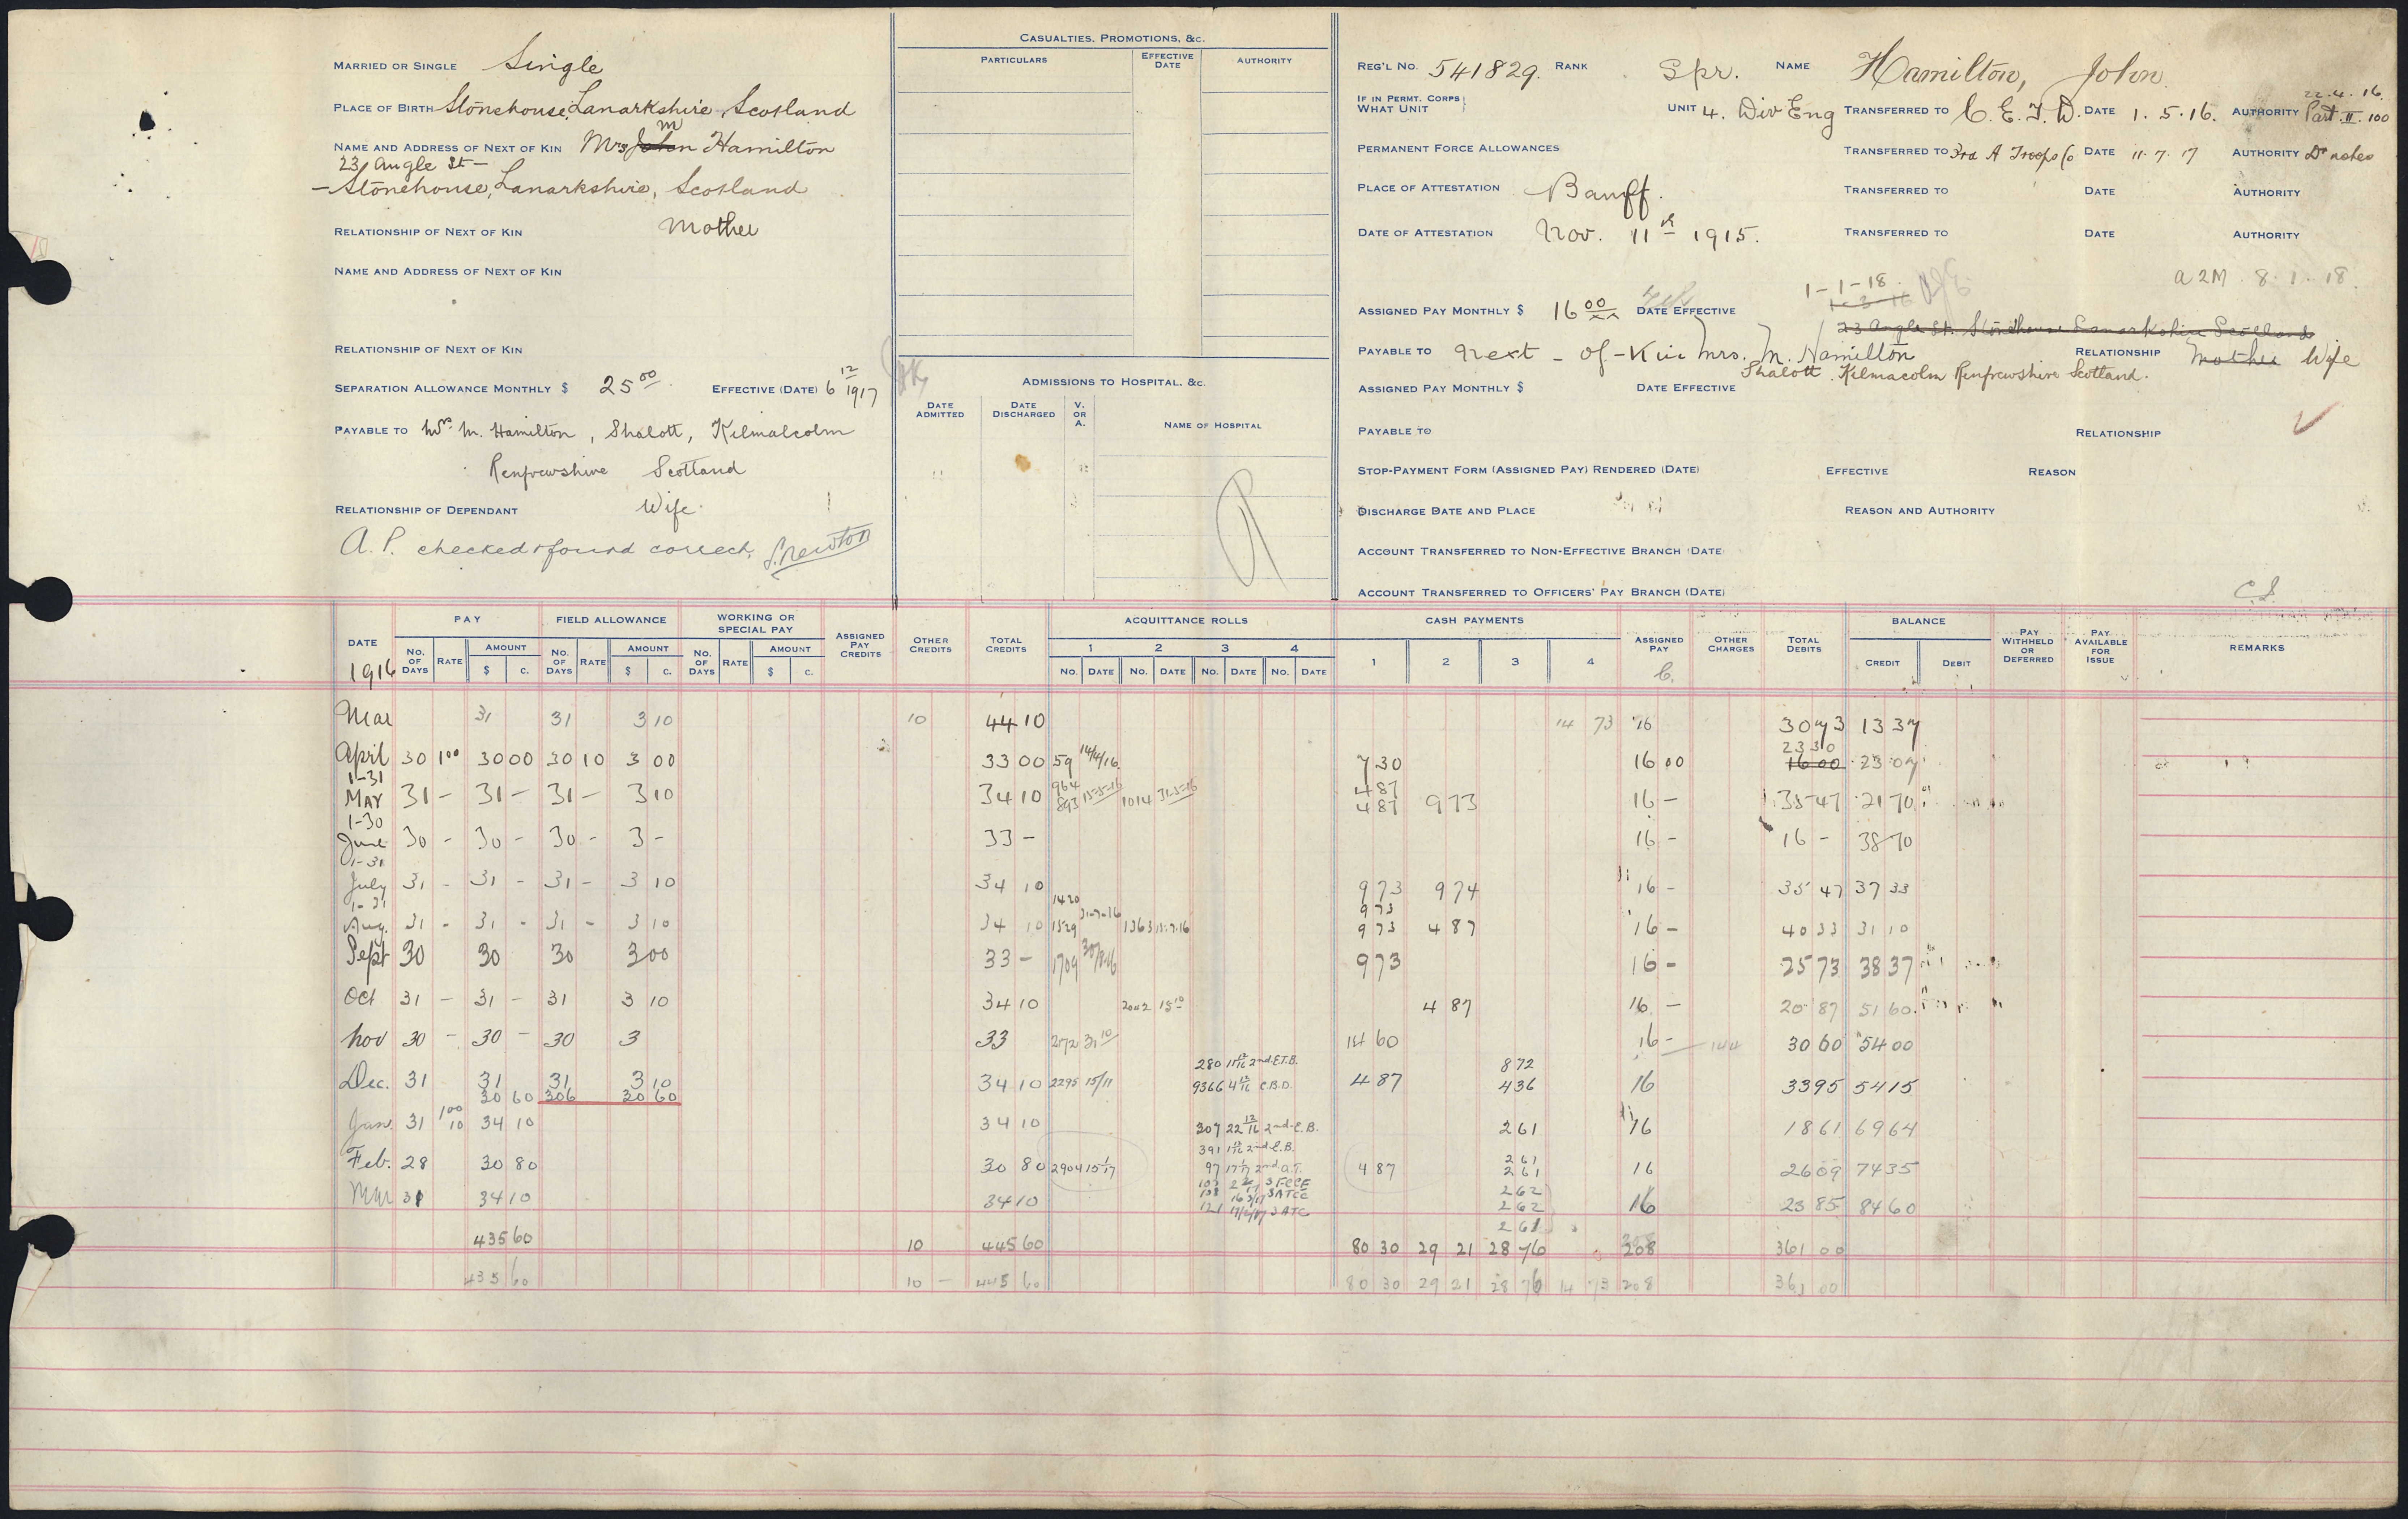 MARRIED OR SINGLE Single
PLACE OF BIRTH Stonehouse, Lanarkshire, Scotland
NAME AND ADDRESS OF NEXT OF KIN Mrs John M Hamilton
23 Angle St —
— Stonehouse, Lanarkshire, Scotland
RELATIONSHIP OF NEXT OF KIN Mother
NAME AND ADDRESS OF NEXT OF KIN
RELATIONSHIP OF NEXT OF KIN
SEPARATION ALLOWANCE MONTHLY $ 25 00 EFFECTIVE (DATE) 6 12 1917
PAYABLE TO Mrs. M. Hamilton, Shalott, Kilmalcolm
Renfrewshire Scotland
RELATIONSHIP OF DEPENDANT Wife
A.P. checked & found correct, S. Newton
CASUALTIES, PROMOTIONS, &c.
PARTICULARS EFFECTIVE DATE AUTHORITY
ADMISSIONS TO HOSPITAL, &c.
DATE ADMITTED DATE DISCHARGED V. OR A. NAME OF HOSPITAL
REG'L NO. 541829. RANK Spr. NAME Hamilton, John
22.4.16
IF IN PERMT. CORPS WHAT UNIT UNIT 4. Div Eng TRANSFERRED TO C.E.T.D. DATE 1.5.16. AUTHORITY Part II. 100
PERMANENT FORCE ALLOWANCES TRANSFERRED TO 3rd A Troops Co DATE 11.7.17 AUTHORITY
PLACE OF ATTESTATION Banff. TRANSFERRED TO DATE AUTHORITY
DATE OF ATTESTATION Nov. 11th 1915. TRANSFERRED TO DATE AUTHORITY
1-1-18. A2M. 8.1.18.
ASSIGNED PAY MONTHLY $ 16 00/xx DATE EFFECTIVE 1-3-16
23 Angle St. Stonehouse Lanarkshire Scotland
PAYABLE TO Next-of-Kin Mrs. M. Hamilton RELATIONSHIP Mother Wife
Shalott. Kilmacolm Renfrewshire Scotland.
ASSIGNED PAY MONTHLY $ DATE EFFECTIVE
PAYABLE TO RELATIONSHIP
STOP-PAYMENT FORM (ASSIGNED PAY) RENDERED (DATE) EFFECTIVE REASON
DISCHARGE DATE AND PLACE REASON AND AUTHORITY
ACCOUNT TRANSFERRED TO NON-EFFECTIVE BRANCH (DATE)
ACCOUNT TRANSFERRED TO OFFICERS' PAY BRANCH (DATE)
C.S.
DATE PAY FIELD ALLOWANCE WORKING OR SPECIAL PAY ASSIGNED PAY CREDITS OTHER CREDITS TOTAL CREDITS ACQUITTANCE ROLLS CASH PAYMENTS ASSIGNED PAY OTHER CHARGES TOTAL DEBITS BALANCE PAY WITHHELD OR DEFERRED PAY AVAILABLE FOR ISSUE REMARKS
NO. OF DAYS RATE AMOUNT NO. OF DAYS RATE AMOUNT NO. OF DAYS RATE AMOUNT 1 2 3 4 1 2 3 4 CREDIT DEBIT
1916 $ c. $ c. $ c. NO. DATE NO. DATE NO. DATE NO. DATE C.
Mar 31 31 3 10 10 44 10 14 73 16 30 73 13 37
23 30
April 30 1 00 30 00 30 10 3 00 33 00 59 14/4/16 7 30 16 00 16 00 23 07
1-31 964 4 87
MAY 31 - 31 - 31 - 3 10 34 10 893 15-5-16 1014 31-5-16 4 87 9 73 16 - 35 47 21 70
1-30
June 30 - 30 - 30 - 3 - 33 - 16 - 16 - 38 70
1-31
July 31 - 31 - 31 - 3 10 34 10 9 73 9 74 16 - 35 47 37 33
1-31 1420 31-7-16 9 73
Aug. 31 - 31 - 31 - 3 10 34 10 1529 1363 15.7.16 9 73 4 87 16 - 40 33 31 10
Sept 30 30 30 3 00 33 - 1709 30/8/16 9 73 16 - 25 73 38 37
Oct 31 - 31 - 31 3 10 34 10 2042 15 10 4 87 16 - 20 87 51 60
Nov 30 - 30 - 30 3 33 2172 31 10 14 60 16 - 144 30 60 54 00
280 11 12/16 2nd E.T.B. 8 72
Dec. 31 31 31 3 10 34 10 2295 15/11 9366 4 12/16 C.B.D. 4 87 4 36 16 33 95 54 15
30 60 306 30 60
Jan. 31 1 00 10 34 10 34 10 307 22 12/16 2nd E.B. 2 61 16 18 61 69 64
391 2nd E.B. 2 61
Feb. 28 30 80 30 80 2904 15 1/17 97 17 1/17 2nd A.T. 4 87 2 61 16 26 09 74 35
103 3 FCCE 2 62
Mar 31 34 10 34 10 108 16 3/17 3 ATCC 2 62 16 23 85 84 60
121 3 ATC 2 61
435 60 10 445 60 80 30 29 21 28 76 208 361 00
435 60 10 - 445 60 80 30 29 21 28 76 14 73 208 361 00